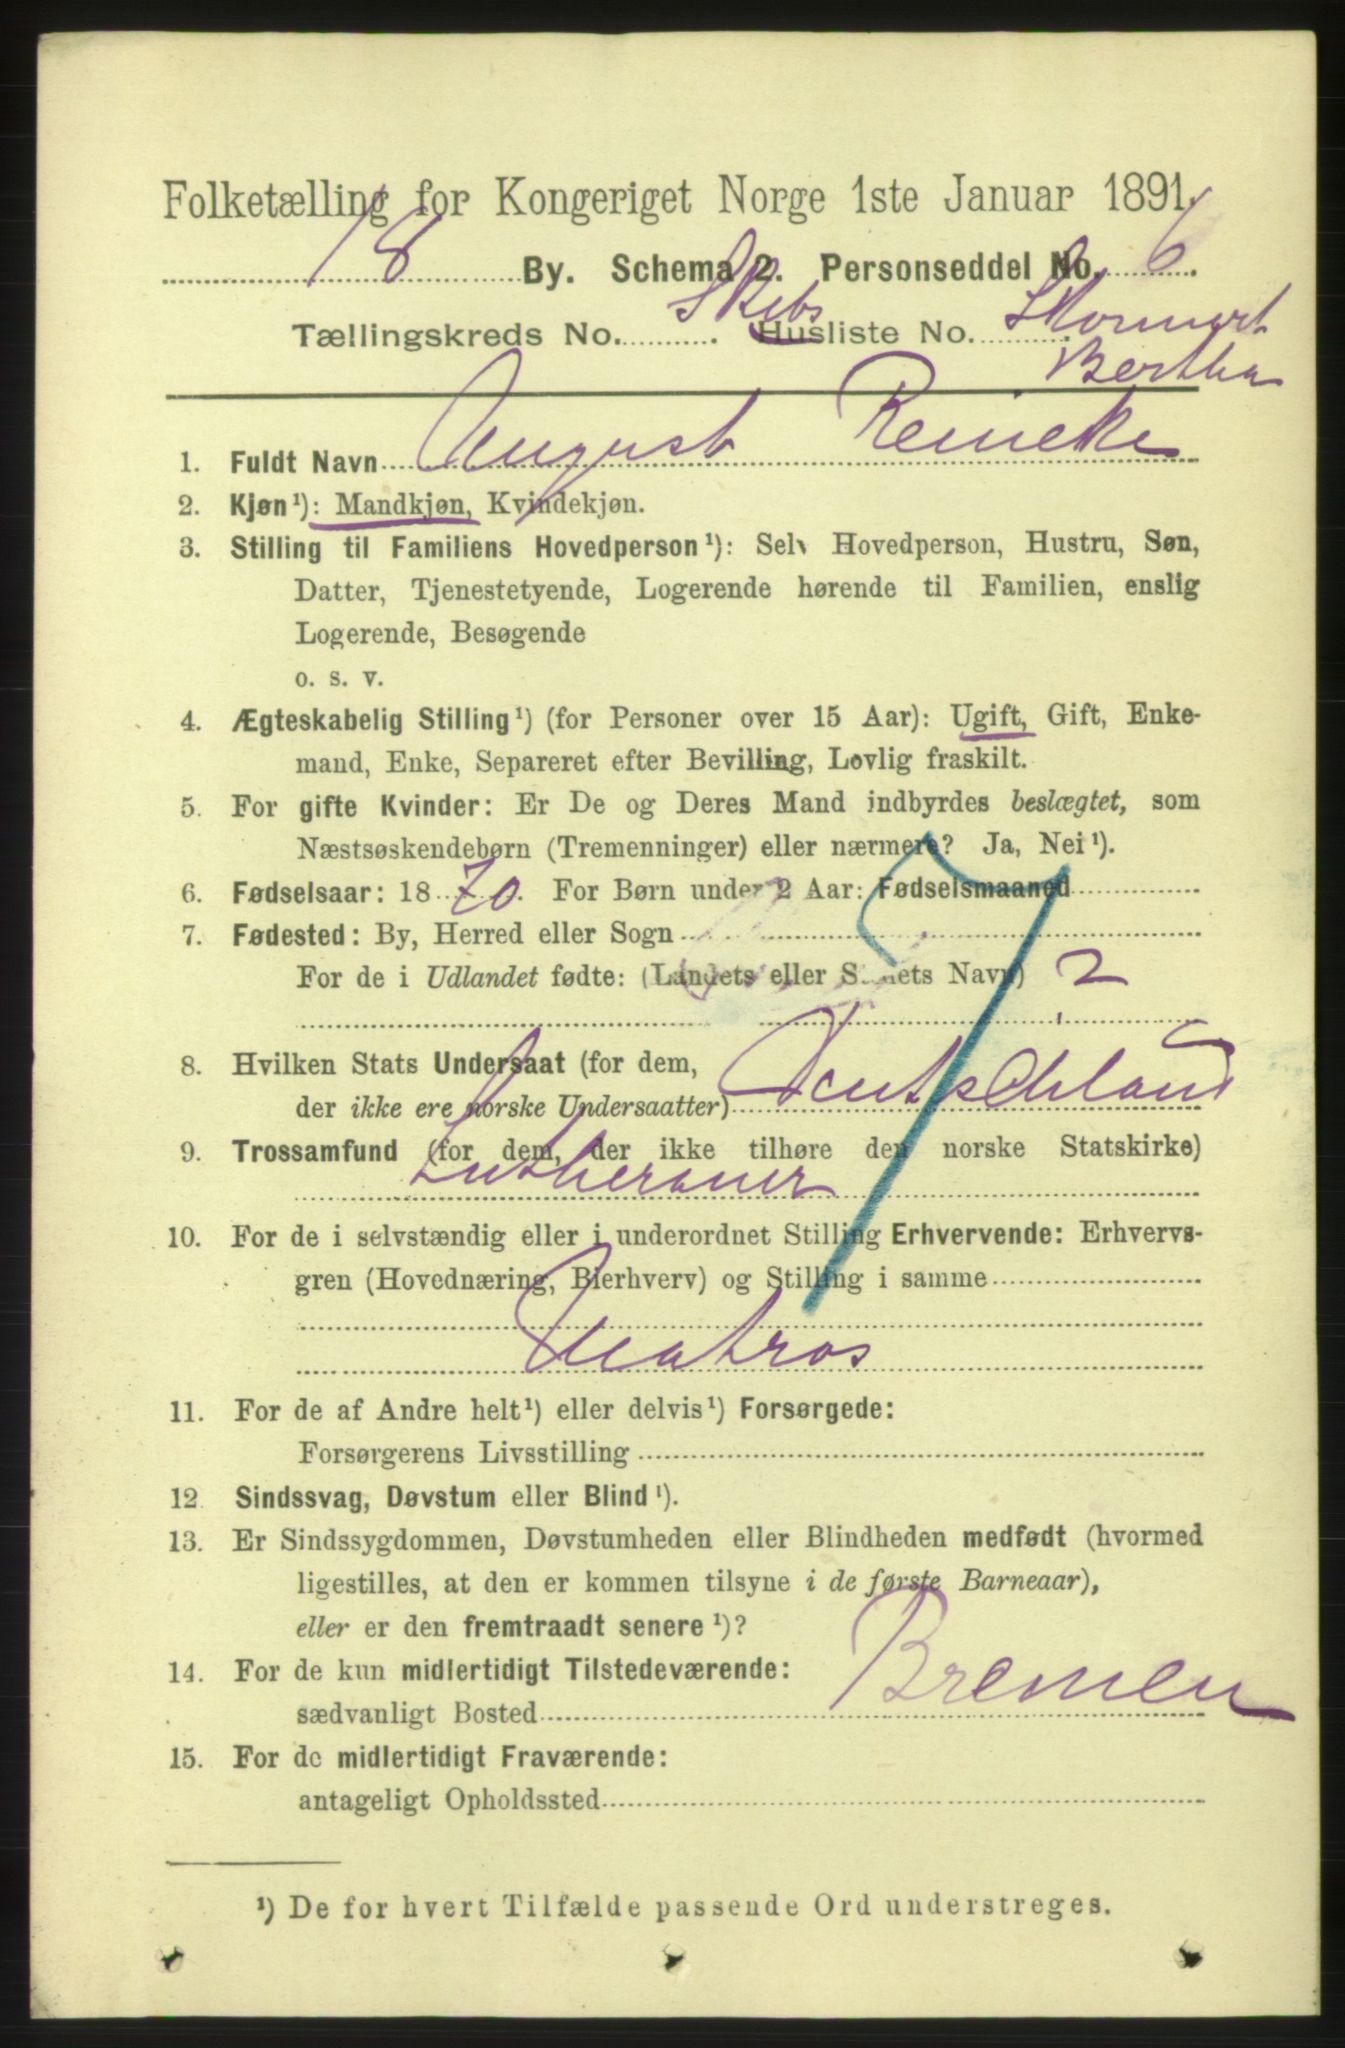 Folketælling for Kongeriget Norge 1ste Januar 1891.
18 By. Schema 2. Personseddel No. 6.
Tællingskreds No. Skibs Husliste No.
Bertha
1. Fuldt Navn August Reineke
2. Kjøn¹): Mandkjøn, Kvindekjøn.
3. Stilling til Familiens Hovedperson¹): Selv Hovedperson, Hustru, Søn,
Datter, Tjenestetyende, Logerende hørende til Familien, enslig
Logerende, Besøgende
o. s. v.
4. Ægteskabelig Stilling¹) (for Personer over 15 Aar): Ugift, Gift, Enke-
mand, Enke, Separeret efter Bevilling, Lovlig fraskilt.
5. For gifte Kvinder: Er De og Deres Mand indbyrdes beslægtet, som
Næstsøskendebørn (Tremenninger) eller nærmere? Ja, Nei¹).
6. Fødselsaar: 1870. For Børn under 2 Aar: Fødselsmaaned
7. Fødested: By, Herred eller Sogn
For de i Udlandet fødte: (Landets eller Stedets Navn) 2
8. Hvilken Stats Undersaat (for dem,
der ikke ere norske Undersaatter) Deutschland
9. Trossamfund (for dem, der ikke tilhøre den norske Statskirke)
Lutheraner
10. For de i selvstændig eller i underordnet Stilling Erhvervende: Erhvervs-
gren (Hovednæring, Bierhverv) og Stilling i samme
Matros
11. For de af Andre helt¹) eller delvis¹) Forsørgede:
Forsørgerens Livsstilling
12 Sindssvag, Døvstum eller Blind¹).
13. Er Sindssygdommen, Døvstumheden eller Blindheden medfødt (hvormed
ligestilles, at den er kommen tilsyne i de første Barneaar),
eller er den fremtraadt senere¹)?
14. For de kun midlertidigt Tilstedeværende:
sædvanligt Bosted Bremen
15. For de midlertidigt Fraværende:
antageligt Opholdssted
¹) De for hvert Tilfælde passende Ord understreges.